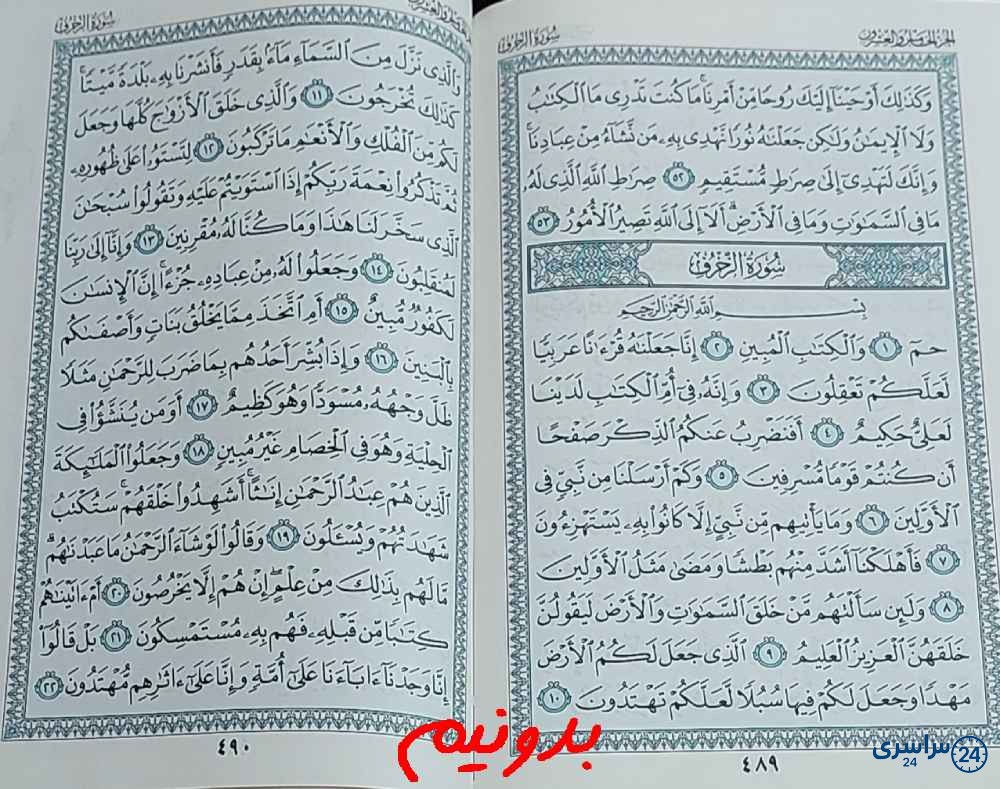 الجزء الخامس والعشرون
سورة الزخرف
وَكَذَٰلِكَ أَوْحَيْنَا إِلَيْكَ رُوحًا مِّنْ أَمْرِنَا ۚ مَا كُنتَ تَدْرِي مَا الْكِتَابُ
وَلَا الْإِيمَانُ وَلَٰكِن جَعَلْنَاهُ نُورًا نَّهْدِي بِهِ مَن نَّشَاءُ مِنْ عِبَادِنَا ۚ
وَإِنَّكَ لَتَهْدِي إِلَىٰ صِرَاطٍ مُّسْتَقِيمٍ ٥٢ صِرَاطِ اللَّهِ الَّذِي لَهُ
مَا فِي السَّمَاوَاتِ وَمَا فِي الْأَرْضِ ۗ أَلَا إِلَى اللَّهِ تَصِيرُ الْأُمُورُ ٥٣
سُورَةُ الزُّخْرُفِ
بِسْمِ اللَّهِ الرَّحْمَٰنِ الرَّحِيمِ
حم ١ وَالْكِتَابِ الْمُبِينِ ٢ إِنَّا جَعَلْنَاهُ قُرْءَانًا عَرَبِيًّا
لَّعَلَّكُمْ تَعْقِلُونَ ٣ وَإِنَّهُ فِي أُمِّ الْكِتَابِ لَدَيْنَا
لَعَلِيٌّ حَكِيمٌ ٤ أَفَنَضْرِبُ عَنكُمُ الذِّكْرَ صَفْحًا
أَن كُنتُمْ قَوْمًا مُّسْرِفِينَ ٥ وَكَمْ أَرْسَلْنَا مِن نَّبِيٍّ فِي
الْأَوَّلِينَ ٦ وَمَا يَأْتِيهِم مِّن نَّبِيٍّ إِلَّا كَانُوا بِهِ يَسْتَهْزِءُونَ
٧ فَأَهْلَكْنَا أَشَدَّ مِنْهُم بَطْشًا وَمَضَىٰ مَثَلُ الْأَوَّلِينَ
٨ وَلَئِن سَأَلْتَهُم مَّنْ خَلَقَ السَّمَاوَاتِ وَالْأَرْضَ لَيَقُولُنَّ
خَلَقَهُنَّ الْعَزِيزُ الْعَلِيمُ ٩ الَّذِي جَعَلَ لَكُمُ الْأَرْضَ
مَهْدًا وَجَعَلَ لَكُمْ فِيهَا سُبُلًا لَّعَلَّكُمْ تَهْتَدُونَ ١٠
٤٨٩
سورة الزخرف
وَالَّذِي نَزَّلَ مِنَ السَّمَاءِ مَاءً بِقَدَرٍ فَأَنشَرْنَا بِهِ بَلْدَةً مَّيْتًا ۚ
كَذَٰلِكَ تُخْرَجُونَ ١١ وَالَّذِي خَلَقَ الْأَزْوَاجَ كُلَّهَا وَجَعَلَ
لَكُم مِّنَ الْفُلْكِ وَالْأَنْعَامِ مَا تَرْكَبُونَ ١٢ لِتَسْتَوُوا عَلَىٰ ظُهُورِهِ
ثُمَّ تَذْكُرُوا نِعْمَةَ رَبِّكُمْ إِذَا اسْتَوَيْتُمْ عَلَيْهِ وَتَقُولُوا سُبْحَانَ
الَّذِي سَخَّرَ لَنَا هَٰذَا وَمَا كُنَّا لَهُ مُقْرِنِينَ ١٣ وَإِنَّا إِلَىٰ رَبِّنَا
لَمُنقَلِبُونَ ١٤ وَجَعَلُوا لَهُ مِنْ عِبَادِهِ جُزْءًا ۚ إِنَّ الْإِنسَانَ
لَكَفُورٌ مُّبِينٌ ١٥ أَمِ اتَّخَذَ مِمَّا يَخْلُقُ بَنَاتٍ وَأَصْفَاكُم
بِالْبَنِينَ ١٦ وَإِذَا بُشِّرَ أَحَدُهُم بِمَا ضَرَبَ لِلرَّحْمَٰنِ مَثَلًا
ظَلَّ وَجْهُهُ مُسْوَدًّا وَهُوَ كَظِيمٌ ١٧ أَوَمَن يُنَشَّؤُا فِي
الْحِلْيَةِ وَهُوَ فِي الْخِصَامِ غَيْرُ مُبِينٍ ١٨ وَجَعَلُوا الْمَلَائِكَةَ
الَّذِينَ هُمْ عِبَادُ الرَّحْمَٰنِ إِنَاثًا ۚ أَشَهِدُوا خَلْقَهُمْ ۚ سَتُكْتَبُ
شَهَادَتُهُمْ وَيُسْأَلُونَ ١٩ وَقَالُوا لَوْ شَاءَ الرَّحْمَٰنُ مَا عَبَدْنَاهُم ۗ
مَّا لَهُم بِذَٰلِكَ مِنْ عِلْمٍ ۖ إِنْ هُمْ إِلَّا يَخْرُصُونَ ٢٠ أَمْ ءَاتَيْنَاهُمْ
كِتَابًا مِّن قَبْلِهِ فَهُم بِهِ مُسْتَمْسِكُونَ ٢١ بَلْ قَالُوا
إِنَّا وَجَدْنَا ءَابَاءَنَا عَلَىٰ أُمَّةٍ وَإِنَّا عَلَىٰ ءَاثَارِهِم مُّهْتَدُونَ ٢٢
٤٩٠
بدونیم
سراسری 24
24